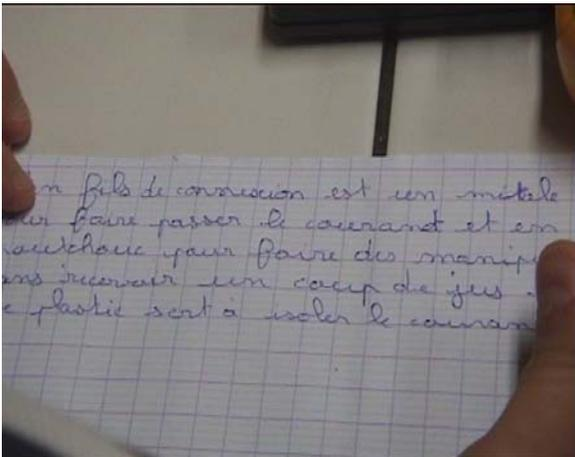 un fils de connexion est un métale
our faire passer le courand et en
aoutchouc pour faire des manip
ans recevoir un coup de jus.
e plastic sert à isoler le couran